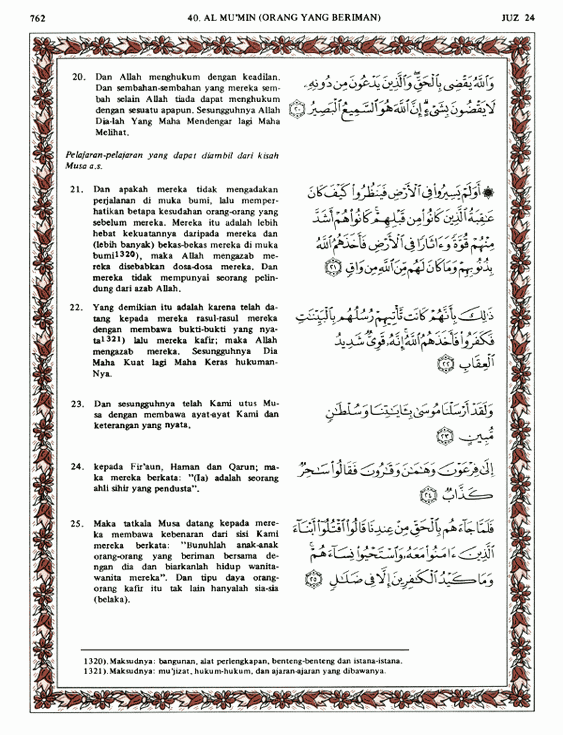 762
40. AL MU'MIN (ORANG YANG BERIMAN)
JUZ 24
20. Dan Allah menghukum dengan keadilan.
Dan sembahan-sembahan yang mereka sem-
bah selain Allah tiada dapat menghukum
dengan sesuatu apapun. Sesungguhnya Allah
Dia-lah Yang Maha Mendengar lagi Maha
Melihat.
وَٱللَّهُ يَقْضِى بِٱلْحَقِّ وَٱلَّذِينَ يَدْعُونَ مِن دُونِهِۦ
لَا يَقْضُونَ بِشَىْءٍ إِنَّ ٱللَّهَ هُوَ ٱلسَّمِيعُ ٱلْبَصِيرُ ٢٠
Pelajaran-pelajaran yang dapat diambil dari kisah
Musa a.s.
21. Dan apakah mereka tidak mengadakan
perjalanan di muka bumi, lalu memper-
hatikan betapa kesudahan orang-orang yang
sebelum mereka. Mereka itu adalah lebih
hebat kekuatannya daripada mereka dan
(lebih banyak) bekas-bekas mereka di muka
bumi1320), maka Allah mengazab me-
reka disebabkan dosa-dosa mereka. Dan
mereka tidak mempunyai seorang pelin-
dung dari azab Allah.
۞ أَوَلَمْ يَسِيرُوا۟ فِى ٱلْأَرْضِ فَيَنظُرُوا۟ كَيْفَ كَانَ
عَٰقِبَةُ ٱلَّذِينَ كَانُوا۟ مِن قَبْلِهِمْ كَانُوا۟ هُمْ أَشَدَّ
مِنْهُمْ قُوَّةً وَءَاثَارًا فِى ٱلْأَرْضِ فَأَخَذَهُمُ ٱللَّهُ
بِذُنُوبِهِمْ وَمَا كَانَ لَهُم مِّنَ ٱللَّهِ مِن وَاقٍ ٢١
22. Yang demikian itu adalah karena telah da-
tang kepada mereka rasul-rasul mereka
dengan membawa bukti-bukti yang nya-
ta1321) lalu mereka kafir; maka Allah
mengazab mereka. Sesungguhnya Dia
Maha Kuat lagi Maha Keras hukuman-
Nya.
ذَٰلِكَ بِأَنَّهُمْ كَانَت تَّأْتِيهِمْ رُسُلُهُم بِٱلْبَيِّنَٰتِ
فَكَفَرُوا۟ فَأَخَذَهُمُ ٱللَّهُ إِنَّهُۥ قَوِىٌّ شَدِيدُ
ٱلْعِقَابِ ٢٢
23. Dan sesungguhnya telah Kami utus Mu-
sa dengan membawa ayat-ayat Kami dan
keterangan yang nyata.
وَلَقَدْ أَرْسَلْنَا مُوسَىٰ بِـَٔايَٰتِنَا وَسُلْطَٰنٍ
مُّبِينٍ ٢٣
24. kepada Fir'aun, Haman dan Qarun; ma-
ka mereka berkata: "(Ia) adalah seorang
ahli sihir yang pendusta".
إِلَىٰ فِرْعَوْنَ وَهَٰمَٰنَ وَقَٰرُونَ فَقَالُوا۟ سَٰحِرٌ
كَذَّابٌ ٢٤
25. Maka tatkala Musa datang kepada mere-
ka membawa kebenaran dari sisi Kami
mereka berkata: "Bunuhlah anak-anak
orang-orang yang beriman bersama de-
ngan dia dan biarkanlah hidup wanita-
wanita mereka". Dan tipu daya orang-
orang kafir itu tak lain hanyalah sia-sia
(belaka).
فَلَمَّا جَآءَهُم بِٱلْحَقِّ مِنْ عِندِنَا قَالُوا۟ ٱقْتُلُوٓا۟ أَبْنَآءَ
ٱلَّذِينَ ءَامَنُوا۟ مَعَهُۥ وَٱسْتَحْيُوا۟ نِسَآءَهُمْ
وَمَا كَيْدُ ٱلْكَٰفِرِينَ إِلَّا فِى ضَلَٰلٍ ٢٥
1320). Maksudnya: bangunan, alat perlengkapan, benteng-benteng dan istana-istana.
1321). Maksudnya: mu'jizat, hukum-hukum, dan ajaran-ajaran yang dibawanya.